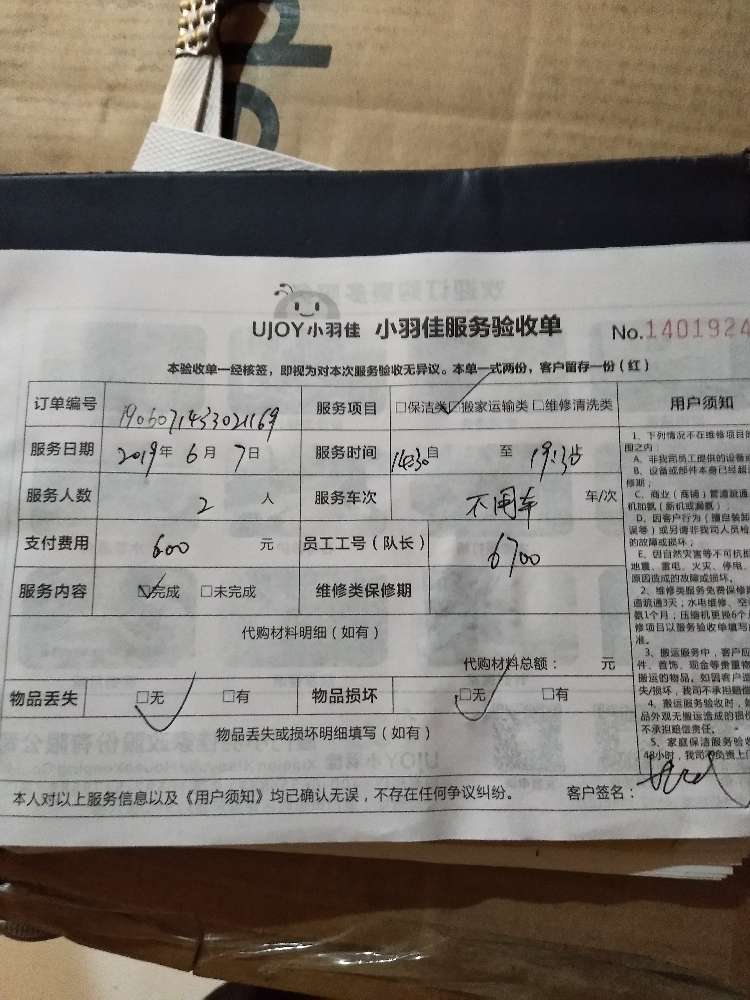 UJOY小羽佳 小羽佳服务验收单 No.1401924
本验收单一经核签，即视为对本次服务验收无异议。本单一式两份，客户留存一份（红）
订单编号 1906071433021169 服务项目 □保洁类 □搬家运输类 □维修清洗类 用户须知
服务日期 2019年 6月 7日 服务时间 14:30自 至 19:35
服务人数 2 人 服务车次 不用车 车/次
支付费用 600 元 员工工号（队长） 6700
服务内容 □完成 □未完成 维修类保修期
代购材料明细（如有）
代购材料总额： 元
物品丢失 □无 □有 物品损坏 □无 □有
物品丢失或损坏明细填写（如有）
本人对以上服务信息以及《用户须知》均已确认无误，不存在任何争议纠纷。 客户签名：
1、下列情况不在维修项目的
围之内：
A、非我司员工提供的设备或
B、设备或部件本身已经超
修期；
C、商业（商铺）管道疏通
机加氨（新机或漏氨）；
D、因客户行为（擅自装卸
误等）或另请非我司人员检
的故障或损坏；
E、因自然灾害等不可抗拒
地震、雷电、火灾、停电、
原因造成的故障或损坏。
2、维修类服务免费保修期
道疏通3天，水电维修、空
氨1个月，压缩机更换6个月
修项目以服务验收单填写
准。
3、搬运服务中，客户应
件、首饰、现金等贵重物
搬运的物品。如因客户造
失/损坏，我司不承担赔偿
4、搬运服务验收时，如
品外观无搬运造成的损
不承担赔偿责任。
5、家庭保洁服务验收
48小时，我司不负责上门